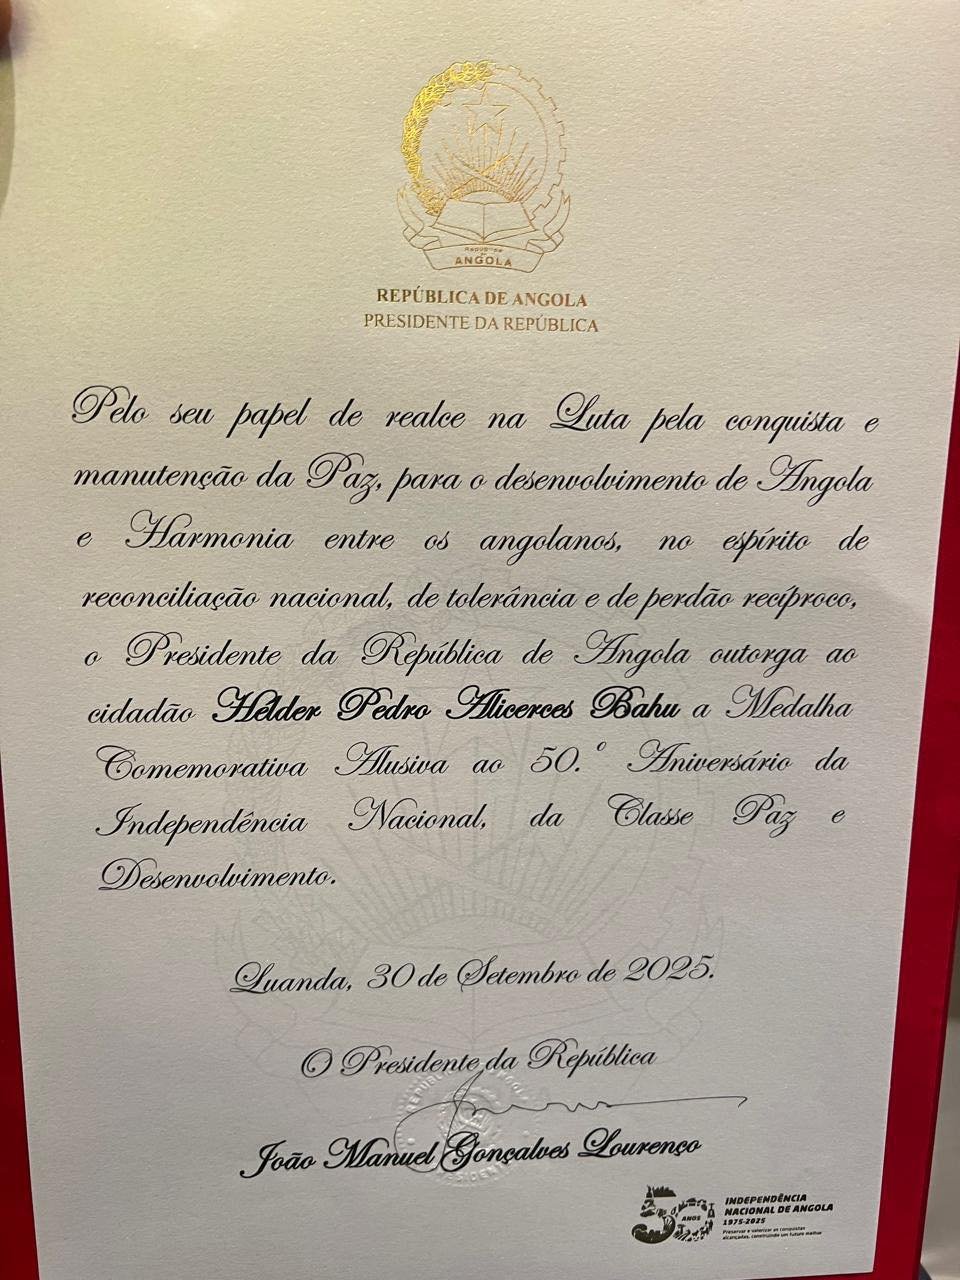 REPÚBLICA DE
ANGOLA
REPÚBLICA DE ANGOLA
PRESIDENTE DA REPÚBLICA
Pelo seu papel de realce na Luta pela conquista e
manutenção da Paz, para o desenvolvimento de Angola
e Harmonia entre os angolanos, no espírito de
reconciliação nacional, de tolerância e de perdão recíproco,
o Presidente da República de Angola outorga ao
cidadão Hélder Pedro Alicerces Bahu a Medalha
Comemorativa Alusiva ao 50.º Aniversário da
Independência Nacional, da Classe Paz e
Desenvolvimento.
Luanda, 30 de Setembro de 2025.
O Presidente da República
João Manuel Gonçalves Lourenço
50 ANOS
INDEPENDÊNCIA
NACIONAL DE ANGOLA
1975-2025
Preservar e valorizar as conquistas
alcançadas, construindo um futuro melhor